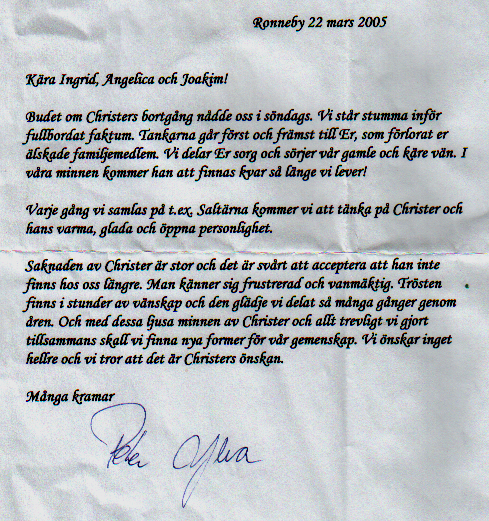 Ronneby 22 mars 2005
Kära Ingrid, Angelica och Joakim!
Budet om Christers bortgång nådde oss i söndags. Vi står stumma inför
fullbordat faktum. Tankarna går först och främst till Er, som förlorat er
älskade familjemedlem. Vi delar Er sorg och sörjer vår gamle och käre vän. I
våra minnen kommer han att finnas kvar så länge vi lever!
Varje gång vi samlas på t.ex. Saltärna kommer vi att tänka på Christer och
hans varma, glada och öppna personlighet.
Saknaden av Christer är stor och det är svårt att acceptera att han inte
finns hos oss längre. Man känner sig frustrerad och vanmäktig. Trösten
finns i stunder av vänskap och den glädje vi delat så många gånger genom
åren. Och med dessa ljusa minnen av Christer och allt trevligt vi gjort
tillsammans skall vi finna nya former för vår gemenskap. Vi önskar inget
hellre och vi tror att det är Christers önskan.
Många kramar
Peter Ylva